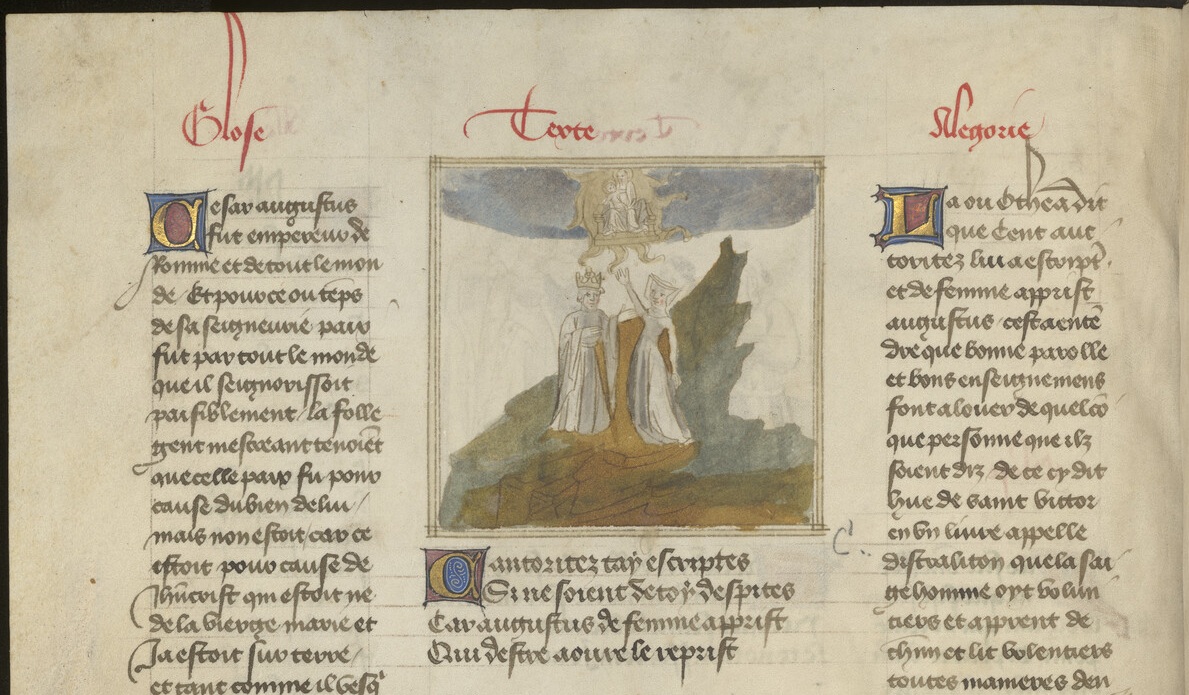 Glose
Cesar augustus
fut empereur de
Romme et de tout le mon
de / Et pour ce ou tēps
de sa seigneurie paix
fut par tout le monde
que il seignorissoit
paisiblement / la folle
gent mescreant tenoiēt
que celle paix fu pour
cause du bien de lui /
mais non estoit / car ce
estoit pour cause de
Jhūcrist qui estoit ne
de la vierge marie et
Ja estoit sur terre /
et tant comme il vesq̄
Texte
Cantoritez tay escriptes
Si ne soient de toy despites
Car augustus de femme apprist
Qui destre aoure le reprist
Alegorie
La ou Othea dit
que Cent auc
toritez lui a escript /
et de femme apprist
augustus / cest a entē
dre que bonne parolle
et bons enseignemens
font a louer de quelcō
que personne que ilz
soient diz / de ce cy dit
hue de saint victor
en vn liure appelle
didascaliton que la sai
ge homme oyt volun
tiers et apprent de
chūn et lit volentiers
toutes manieres den